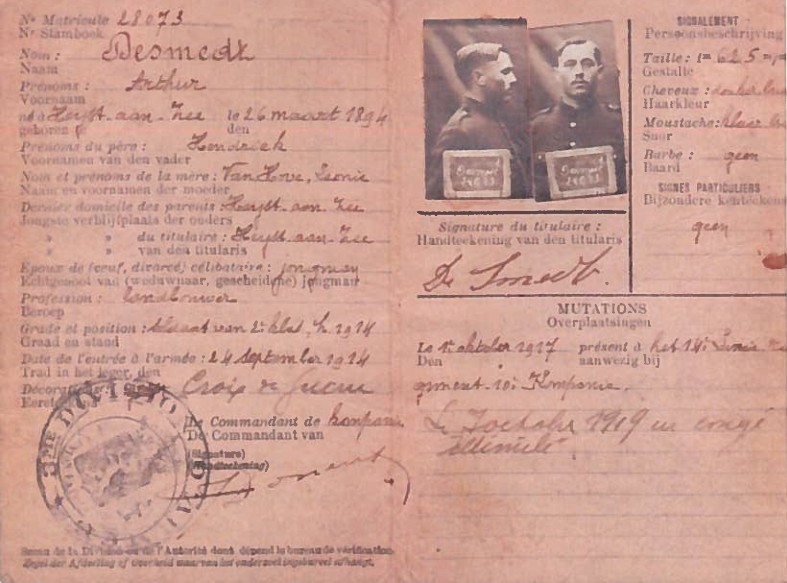 Nº Matricule 28073
Nr Stamboek
Nom : Desmedt
Naam
Prénoms : Arthur
Voornaam
né à Heyst-aan-Zee le 26 maart 1894
geboren te den
Prénoms du père : Hendrick
Voornamen van den vader
Nom et prénoms de la mère : Van Hove, Leonie
Naam en voornamen der moeder
Dernier domicile des parents : Heyst-aan-Zee
Jongste verblijfplaats der ouders
» » du titulaire : Heyst-aan-Zee
» » van den titularis
Epoux de (veuf, divorcé) célibataire : jongman
Echtgenoot van (weduwnaar, gescheidene) jongman
Profession : Landbouwer
Beroep
Grade et position : soldaat van 2e klas, 1914
Graad en stand
Date de l'entrée à l'armée : 24 september 1914
Trad in het leger, den
Décorations : Croix de Guerre
Le Commandant de Kompanie
De Commandant van
(Signature)
(Handteekening)
3me DIVISION
Sceau de la Division ou de l'Autorité dont dépend le bureau de vérification.
Zegel der Afdeeling of Overheid waarvan het
Desmedt
Desmedt
Signature du titulaire :
Handteekening van den titularis
De Smedt.
SIGNALEMENT
Persoonsbeschrijving
Taille : 1m 625
Gestalte
Cheveux : donker
Haarkleur
Moustache : klaar
Snor
Barbe : geen
Baard
SIGNES PARTICULIERS
Bijzondere kenteekens
geen
MUTATIONS
Overplaatsingen
Le 1e oktober 1917 présent à het 14e Linie
Den aanwezig bij
giment 10e Kompanie.
Le 7 octobre 1919 en congé
illimité